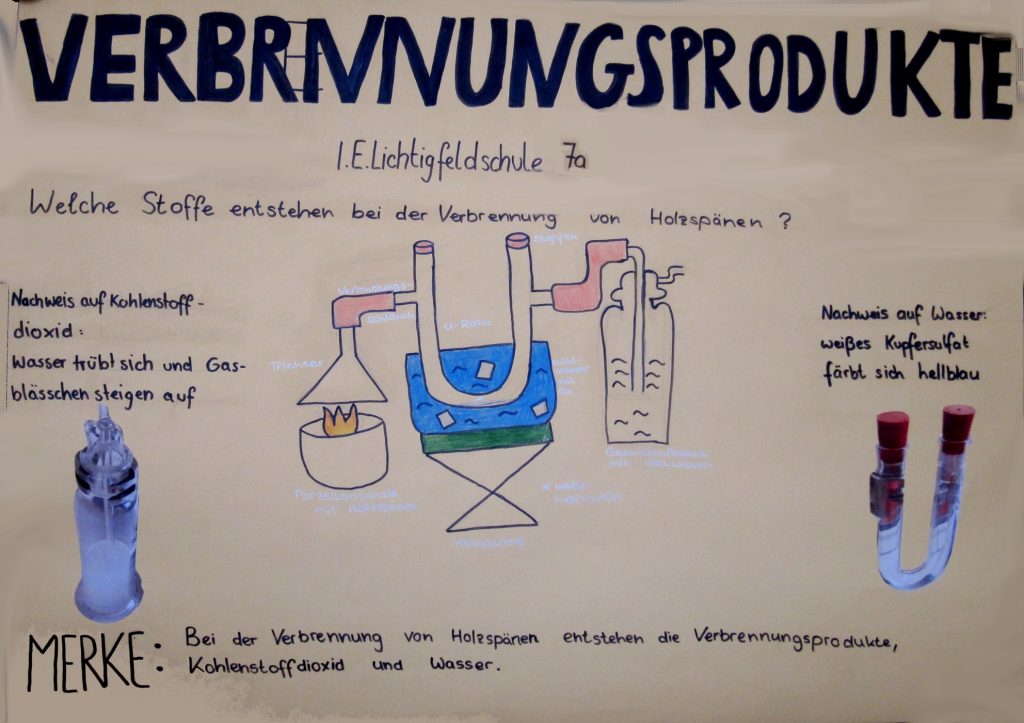 VERBRENNUNGSPRODUKTE
I.E.Lichtigfeldschule 7a
Welche Stoffe entstehen bei der Verbrennung von Holzspänen ?
Nachweis auf Kohlenstoff-
dioxid:
Wasser trübt sich und Gas-
blässchen steigen auf
Stopfen
Verbindungs-
schlauch
U-Rohr
Trichter
wasser
mit
Gaswaschflasche
mit Kalkwasser
Porzellanschale
mit Holzspänen
* weißes
Kupfersulfat
Hebebühne
Nachweis auf Wasser:
weißes Kupfersulfat
färbt sich hellblau
MERKE: Bei der Verbrennung von Holzspänen entstehen die Verbrennungsprodukte,
Kohlenstoffdioxid und Wasser.